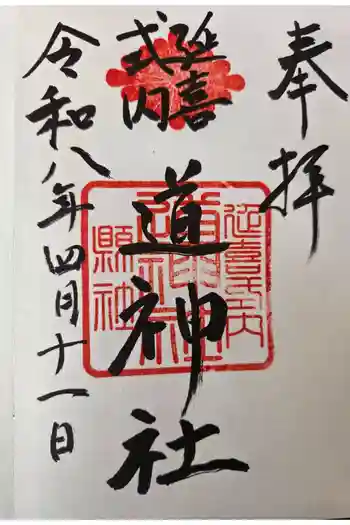 奉拝
延喜
式内
道神社
延喜式内
道神社
縣社
令和八年四月十一日